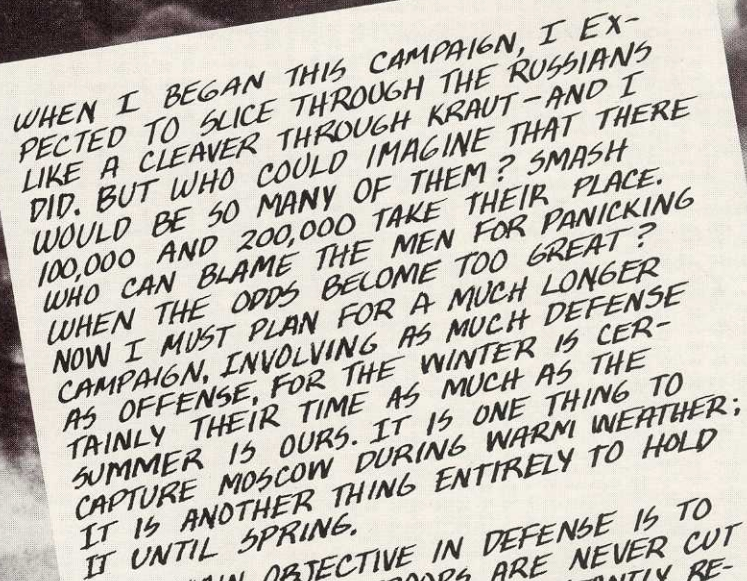 WHEN I BEGAN THIS CAMPAIGN, I EX-
PECTED TO SLICE THROUGH THE RUSSIANS
LIKE A CLEAVER THROUGH KRAUT-AND I
DID. BUT WHO COULD IMAGINE THAT THERE
WOULD BE SO MANY OF THEM? SMASH
100,000 AND 200,000 TAKE THEIR PLACE.
WHO CAN BLAME THE MEN FOR PANICKING
WHEN THE ODDS BECOME TOO GREAT?
NOW I MUST PLAN FOR A MUCH LONGER
CAMPAIGN, INVOLVING AS MUCH DEFENSE
AS OFFENSE, FOR THE WINTER IS CER-
TAINLY THEIR TIME AS MUCH AS THE
SUMMER IS OURS. IT IS ONE THING TO
CAPTURE MOSCOW DURING WARM WEATHER;
IT IS ANOTHER THING ENTIRELY TO HOLD
IT UNTIL SPRING.
OBJECTIVE IN DEFENSE IS TO
ARE NEVER CUT
RE-